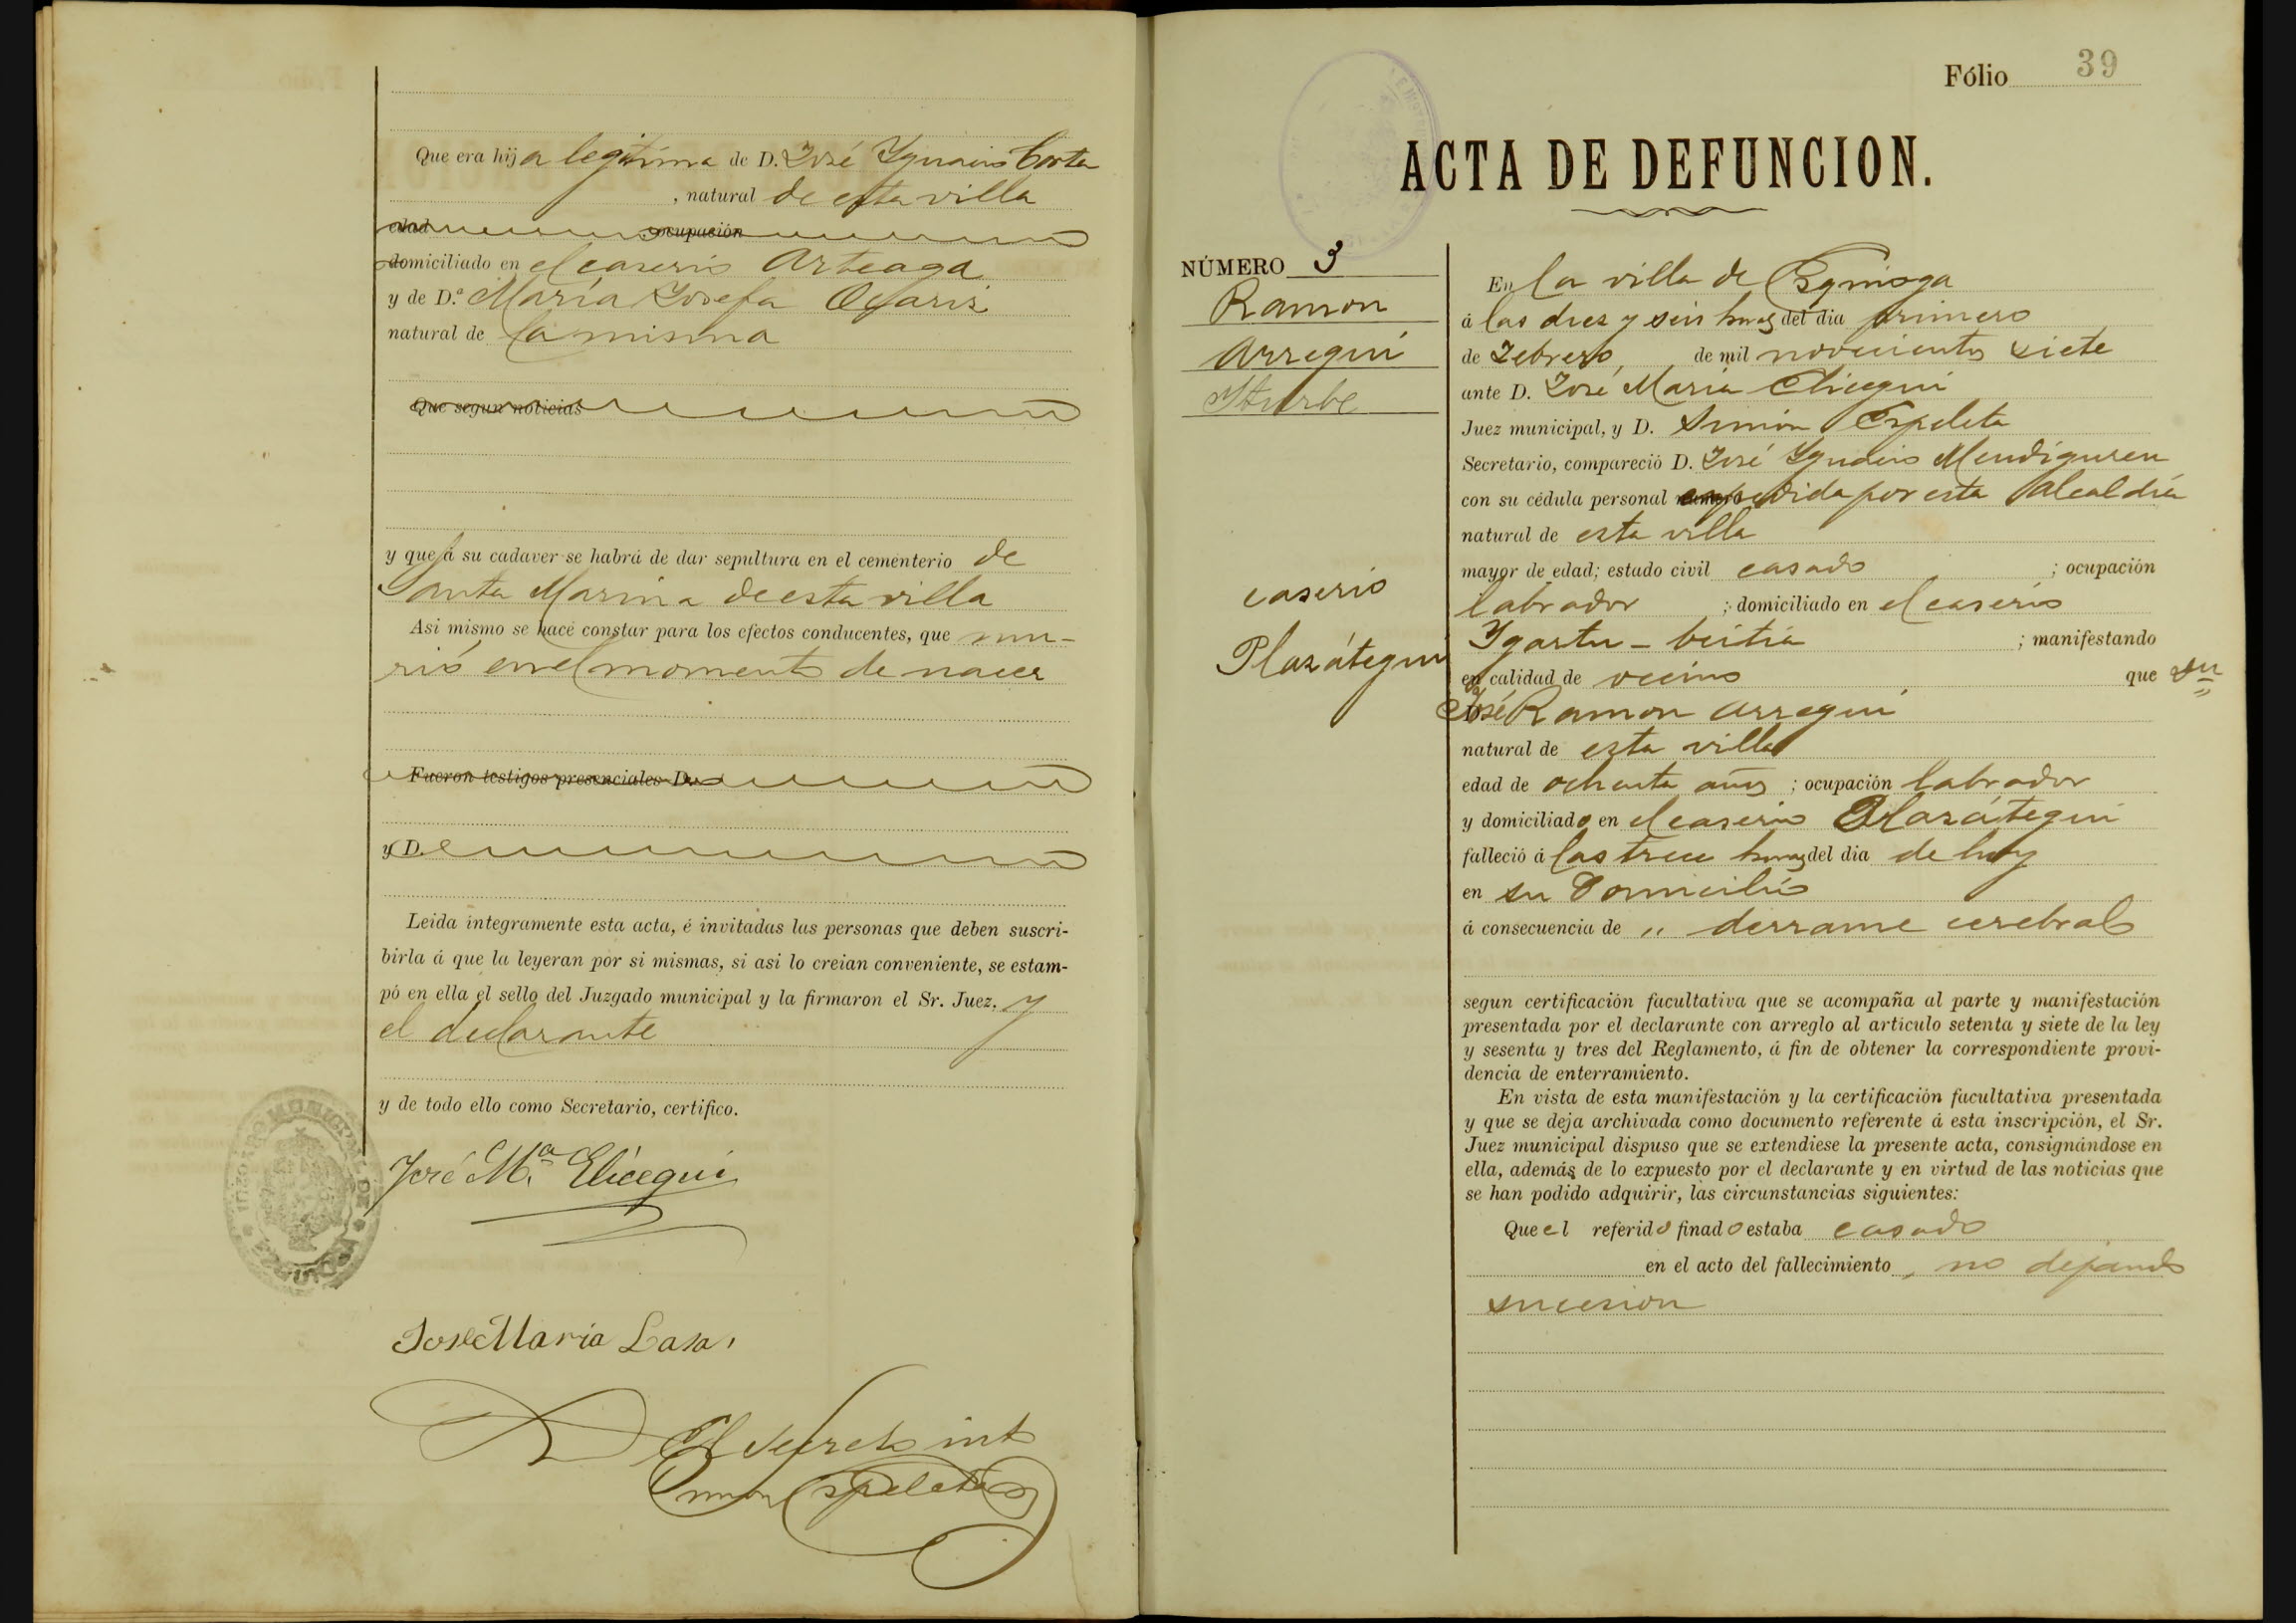 Que era hija legitima de D. José Ygnacio Corta
, natural de esta villa
edad ocupación
domiciliado en el caserio Arteaga
y de D.ª María Josefa Oyariz
natural de la misma
Que segun noticias
y que á su cadaver se habrá de dar sepultura en el cementerio de
Santa Marina de esta villa
Asi mismo se hace constar para los efectos conducentes, que mu-
rió en el momento de nacer
Fueron testigos presenciales D.
y D.
Leida integramente esta acta, é invitadas las personas que deben suscri-
birla á que la leyeran por si mismas, si asi lo creian conveniente, se estam-
pó en ella el sello del Juzgado municipal y la firmaron el Sr. Juez. y
el declarante
y de todo ello como Secretario, certifico.
JUZGADO MUNICIPAL DE
José M.ª Elicegui
Jose Maria Lasa
El Secret.o int.o
Simon Espeleta
Fólio 39
ACTA DE DEFUNCION.
NÚMERO 3
Ramon
Arregui
Yturbe
caserio
Plazátegui
En la villa de
á las diez y seis horas del dia primero
de Febrero, de mil novecientos siete
ante D. José María Elicegui
Juez municipal, y D. Simón Espeleta
Secretario, compareció D. José Ygnacio Mendiguren
con su cédula personal numero expedida por esta Alcaldía
natural de esta villa
mayor de edad; estado civil casado ; ocupación
labrador ; domiciliado en el caserio
Ygartu-beitia ; manifestando
en calidad de vecino que Dn
José Ramon Arregui
natural de esta villa
edad de ochenta años ; ocupación labrador
y domiciliado en el caserio Plazátegui
falleció á las trece horas del dia de hoy
en su domicilio
á consecuencia de „ derrame cerebral
segun certificación facultativa que se acompaña al parte y manifestación
presentada por el declarante con arreglo al artículo setenta y siete de la ley
y sesenta y tres del Reglamento, á fin de obtener la correspondiente provi-
dencia de enterramiento.
En vista de esta manifestación y la certificación facultativa presentada
y que se deja archivada como documento referente á esta inscripción, el Sr.
Juez municipal dispuso que se extendiese la presente acta, consignándose en
ella, además de lo expuesto por el declarante y en virtud de las noticias que
se han podido adquirir, las circunstancias siguientes:
Que el referido finado estaba casado
en el acto del fallecimiento , no dejando
sucesion